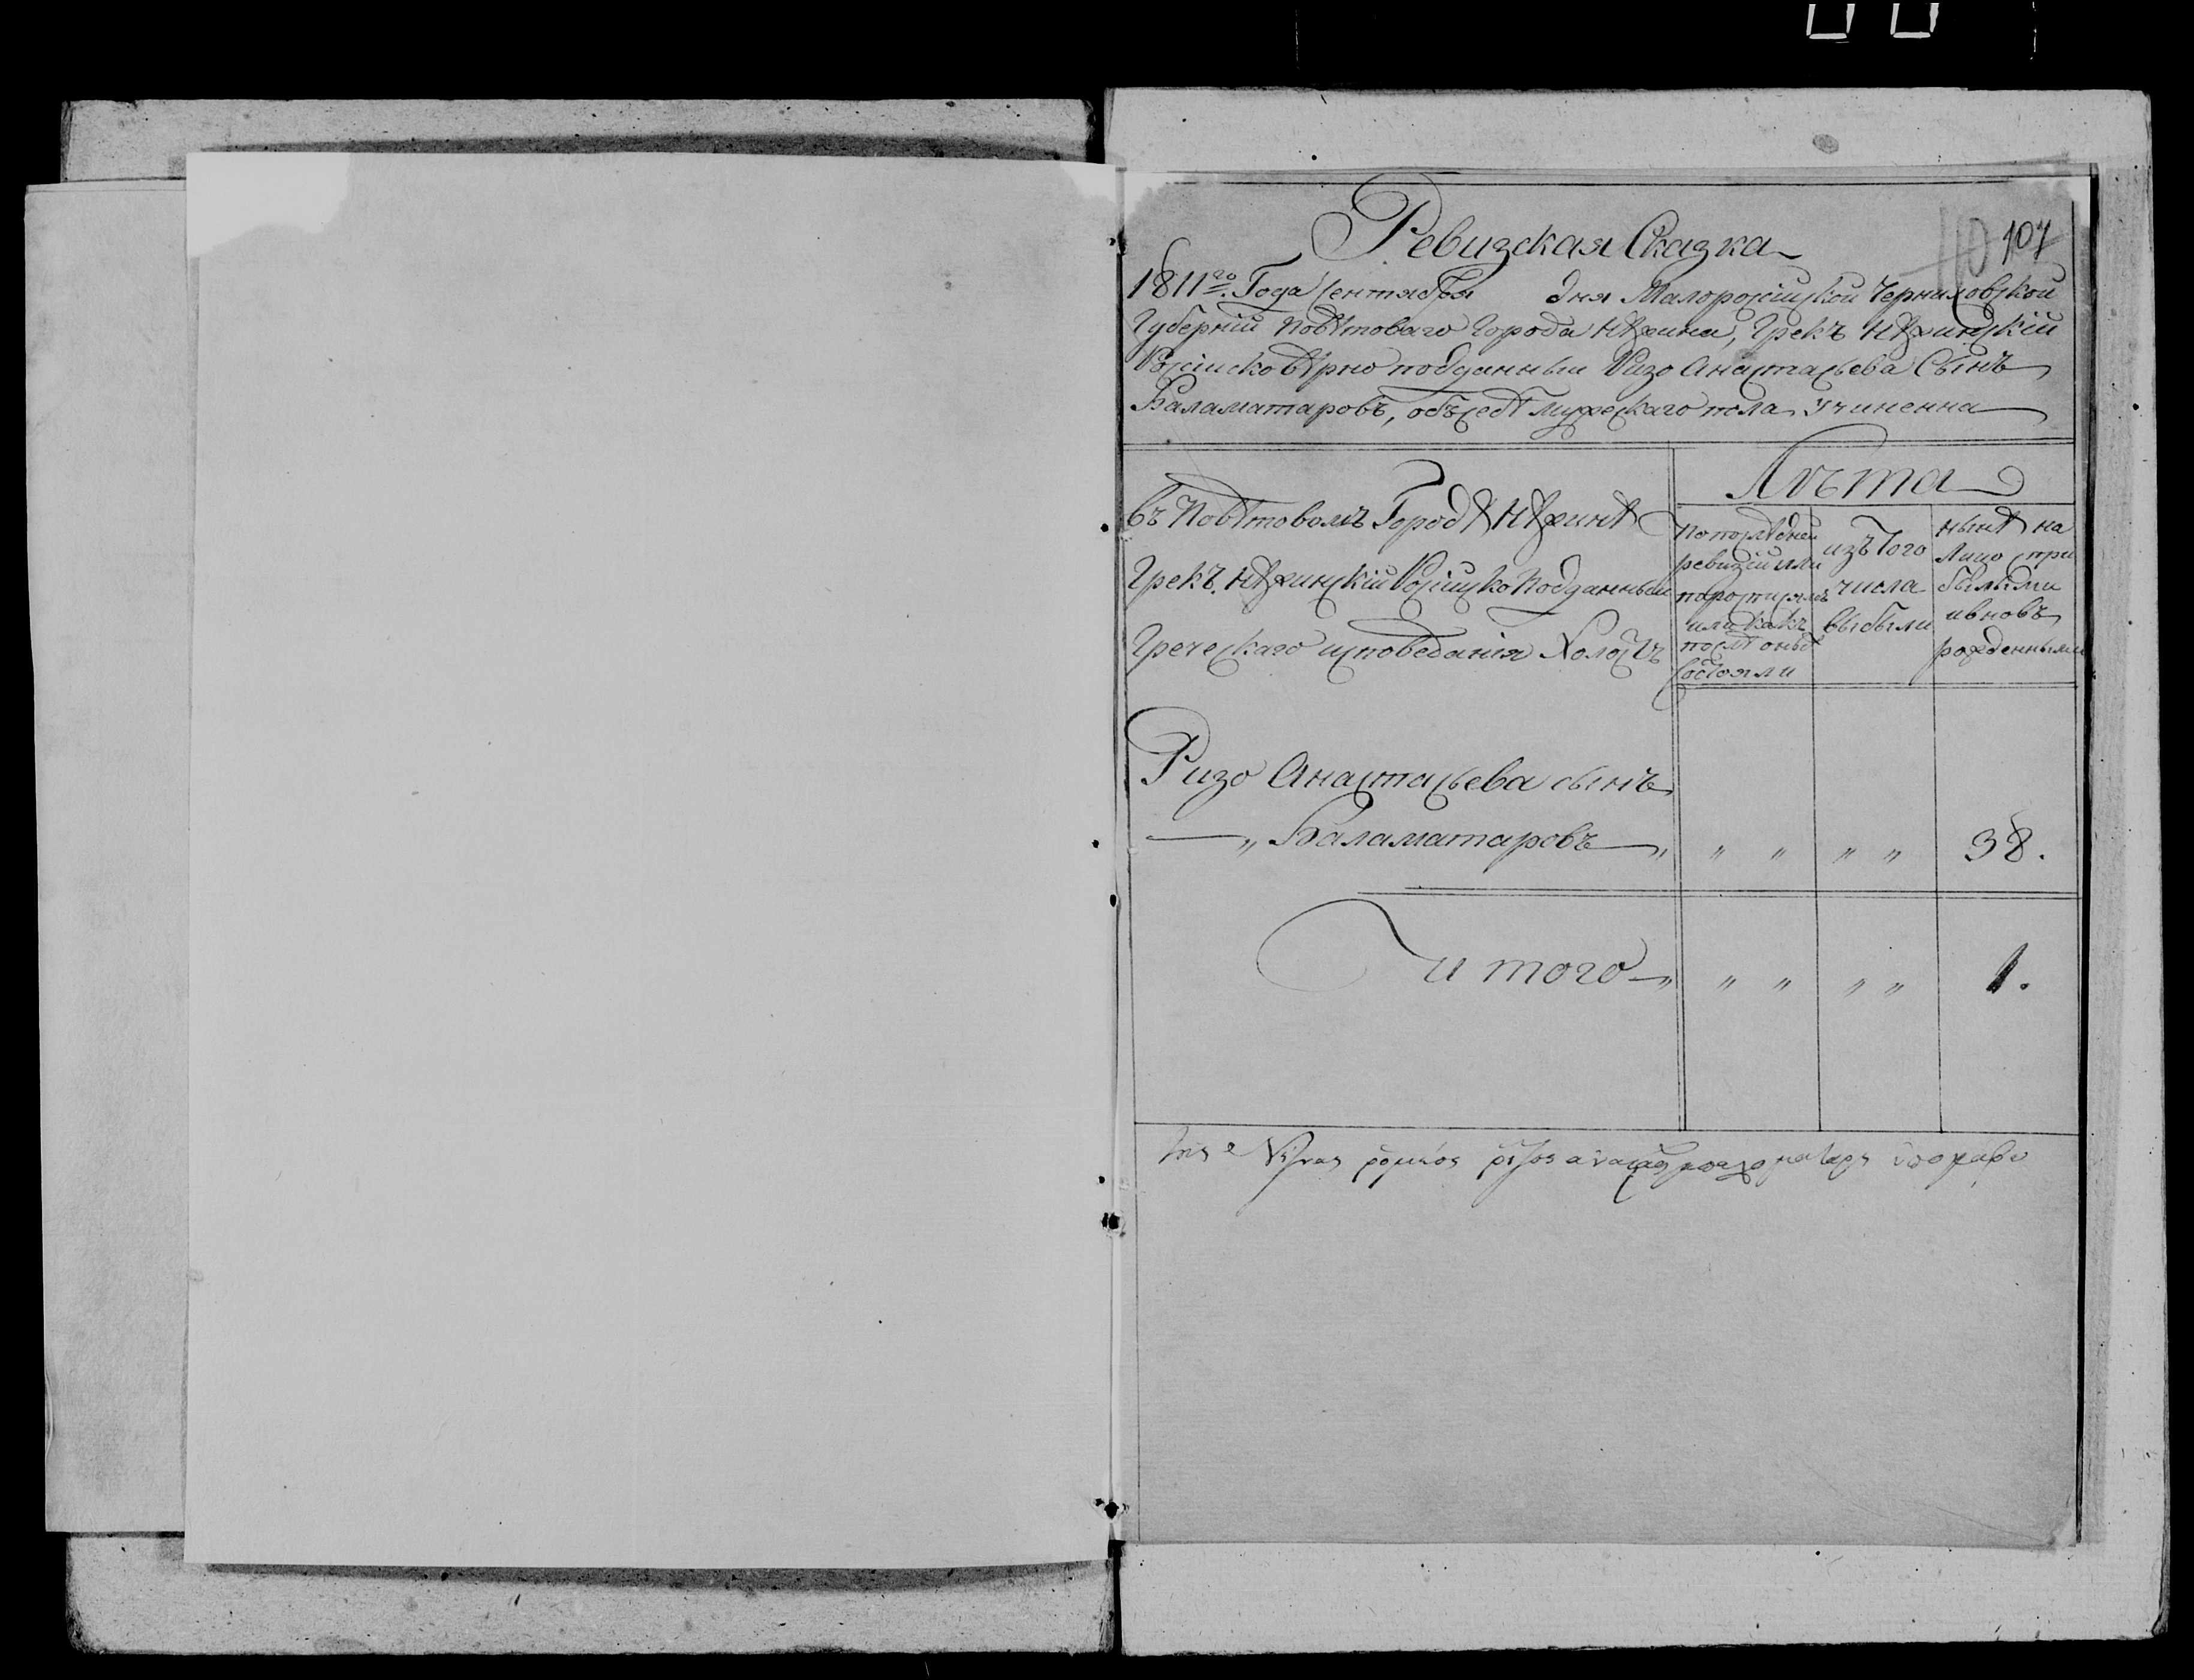 Ревизская Сказка
110 107
1811го. Года Сентября дня Малоросійской Черниговской
Губерніи Повѣтоваго Города Нѣжина, Грекъ Нѣжинскій
Росіиско вѣрно подданныи Ризо Анастасьева Сынъ
Баламатаровъ, обѣ себѣ мужескаго пола учиненна
Лѣта
въ Повѣтовомъ Городѣ Нѣжинѣ
Грекъ Нѣжинскій Російско Подданный
Греческаго исповеданія Холостъ
По последней
ревизіи или
по росписямъ
или какъ
послѣ оныхъ
состояли
изъ того
числа
выбыли
нынѣ на
лицо при
былыми
и вновь
рожденными
Ризо Анастасьева сынъ
— „ Баламатаровъ — „ „ „ „ „ 38.
и того — „ „ „ „ „ 1.
Νίζνας ρομεός ρίζος